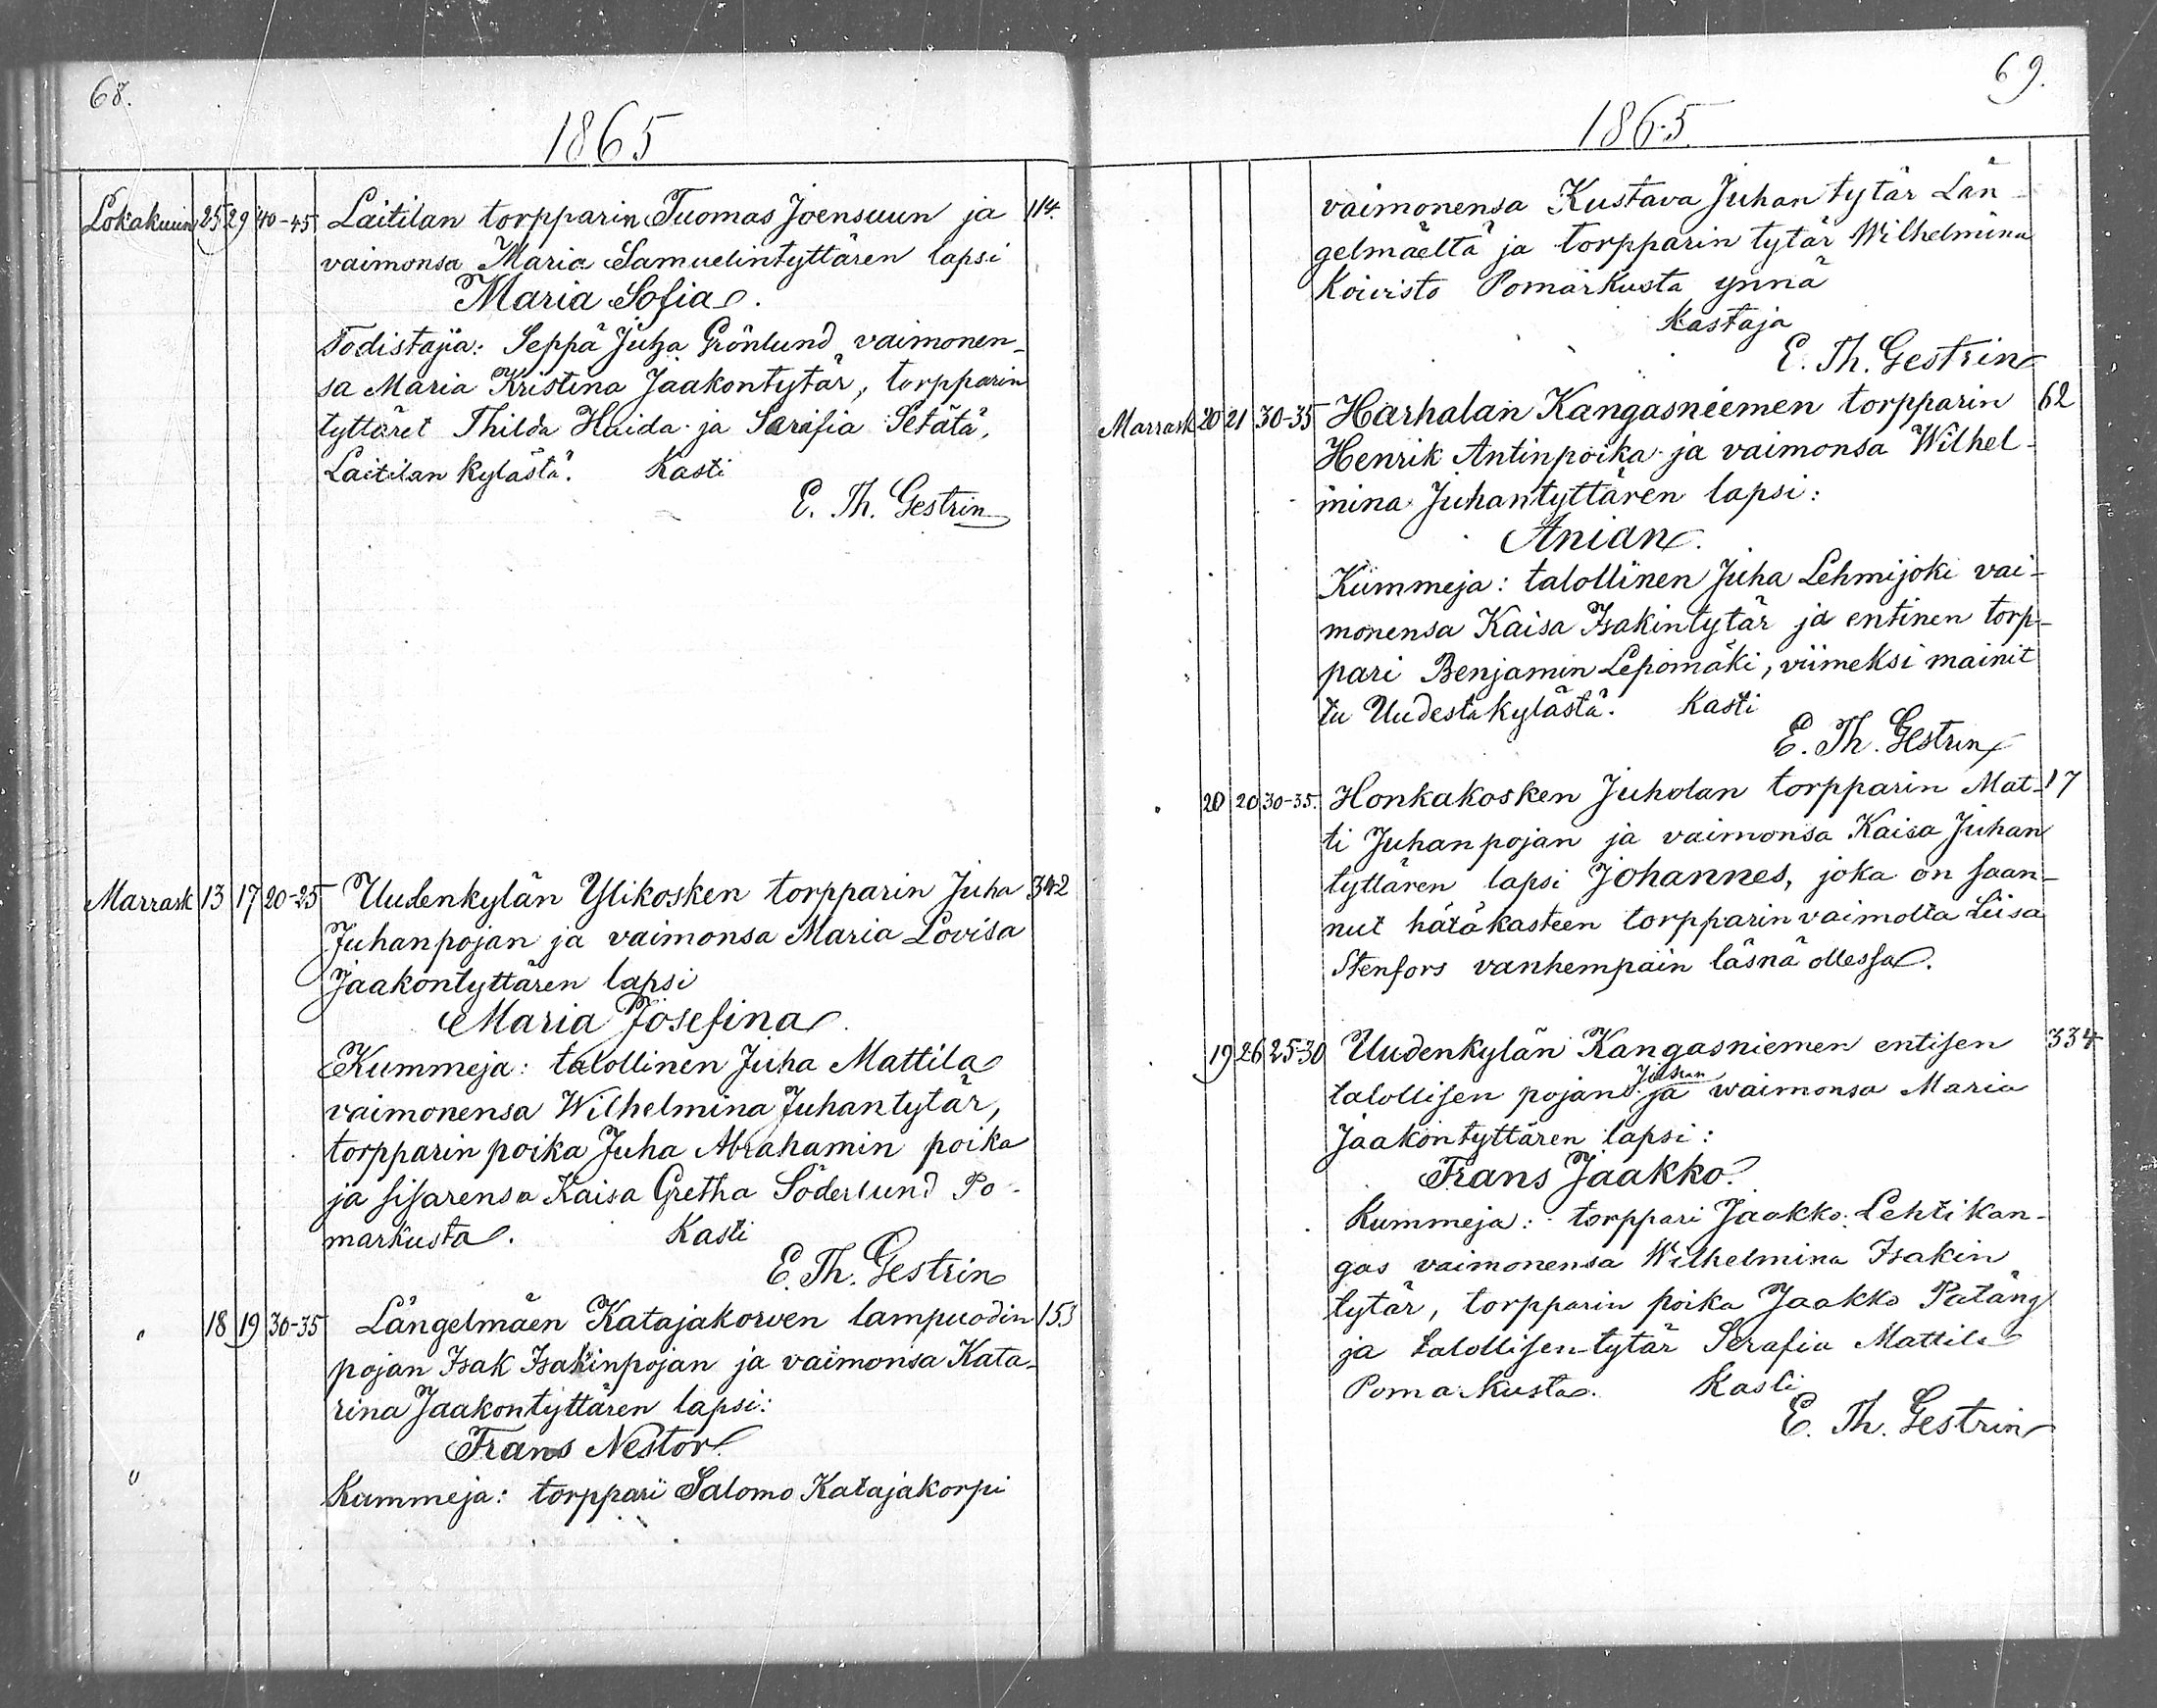 68.
1865
Lokakuun 25 29 40-45 Laitilan torpparin Tuomas Joensuun ja 114.
vaimonsa Maria Samuelintyttären lapsi
Maria Sofia.
Todistajia: Seppä Juha Grönlund vaimonen-
sa Maria Kristina Jaakontytär, torpparin
tyttäret Thilda Haida ja Serafia Setätä,
Laitilan kylästä. Kasti
E. Th. Gestrin
Marrask 13 17 20-25 Uudenkylän Ylikosken torpparin Juha 342
Juhanpojan ja vaimonsa Maria Lovisa
Jaakontyttären lapsi
Maria Josefina.
Kummeja: talollinen Juha Mattila
vaimonensa Wilhelmina Juhantytär,
torpparin poika Juha Abrahamin poika
ja sisarensa Kaisa Gretha Söderlund Po-
markusta. Kasti
E. Th. Gestrin
" 18 19 30-35 Längelmäen Katajakorven lampuodin 153
pojan Isak Isakinpojan ja vaimonsa Kata-
rina Jaakontyttären lapsi:
Frans Nestor.
" Kummeja: torppari Salomo Katajakorpi
69.
1865.
vaimonensa Kustava Juhantytär Län-
gelmäeltä ja torpparin tytär Wilhelmina
Koivisto Pomarkusta ynnä
Kastaja
E. Th. Gestrin
Marrask 20 21 30-35 Harhalan Kangasniemen torpparin 62
Henrik Antinpoika ja vaimonsa Wilhel-
mina Juhantyttären lapsi:
Anian.
Kummeja: talollinen Juha Lehmijoki vai-
monensa Kaisa Isakintytär ja entinen torp-
pari Benjamin Lepomäki, viimeksi mainit
tu Uudestakylästä. Kasti
E. Th. Gestrin
20 20 30-35. Honkakosken Juholan torpparin Mat- 17
ti Juhanpojan ja vaimonsa Kaisa Juhan
tyttären lapsi Johannes, joka on saan-
nut hätäkasteen torpparinvaimolta Liisa
Stenfors vanhempain läsnä ollessa.
19 26 25-30 Uudenkylän Kangasniemen entisen 334
talollisen pojan Juhan ja waimonsa Maria
Jaakontyttären lapsi:
Frans Jaakko.
Kummeja: torppari Jaakko Lehtikan-
gas vaimonensa Wilhelmina Isakin
tytär, torpparin poika Jaakko Patäng
ja talollisen-tytär Serafia Mattila
Pomarkusta. Kasti
E. Th. Gestrin